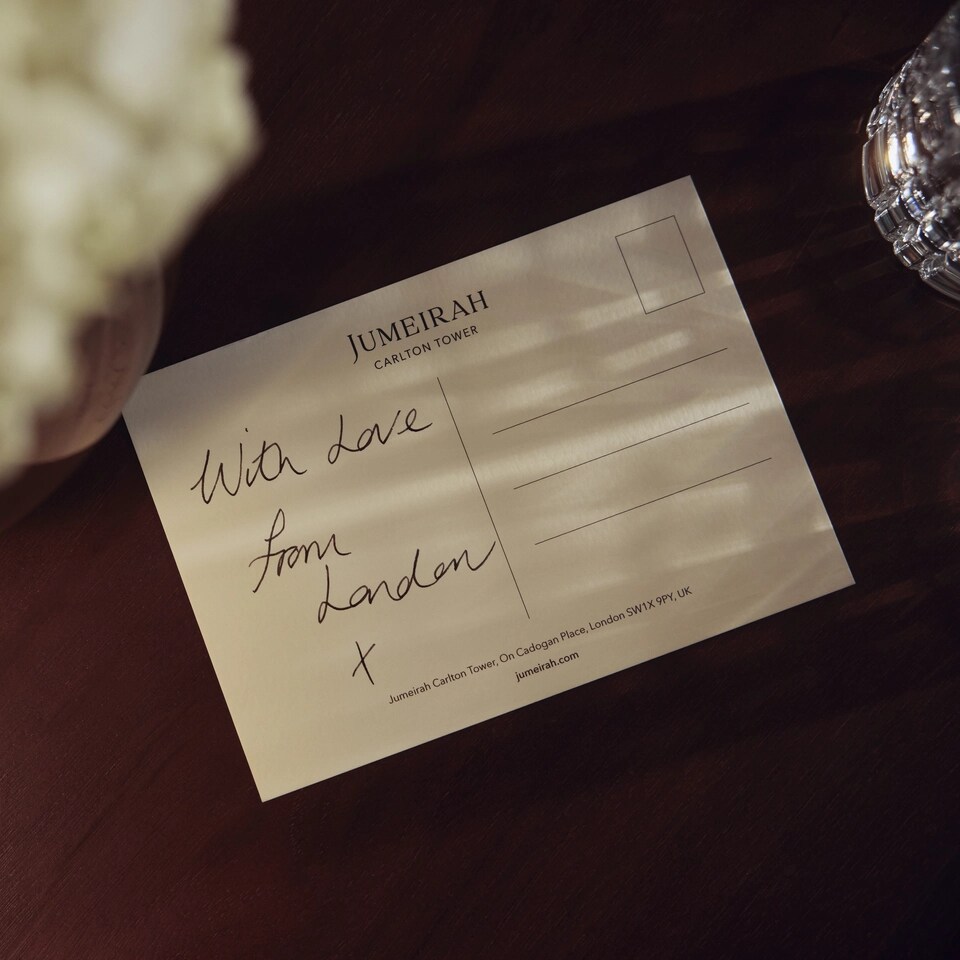 JUMEIRAH
CARLTON TOWER
With Love
from
London
x
Jumeirah Carlton Tower, On Cadogan Place, London SW1X 9PY, UK
jumeirah.com